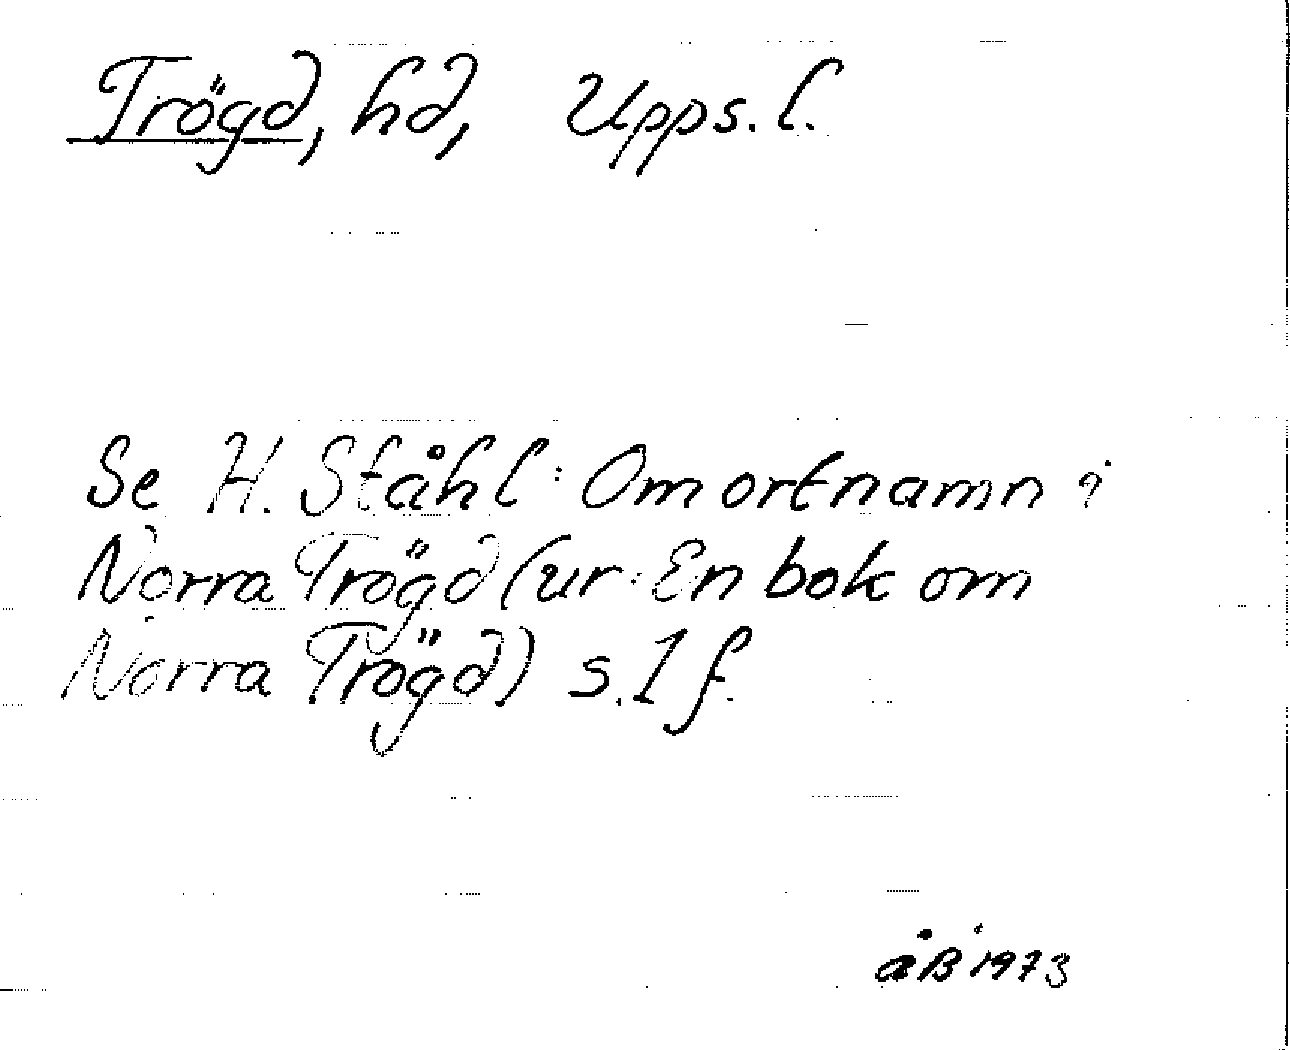 Trögd, hd, Upps. l.
Se H. Ståhl: Om ortnamn i
Norra Trögd (ur: En bok om
Norra Trögd) s. 1 f.
åB 1973